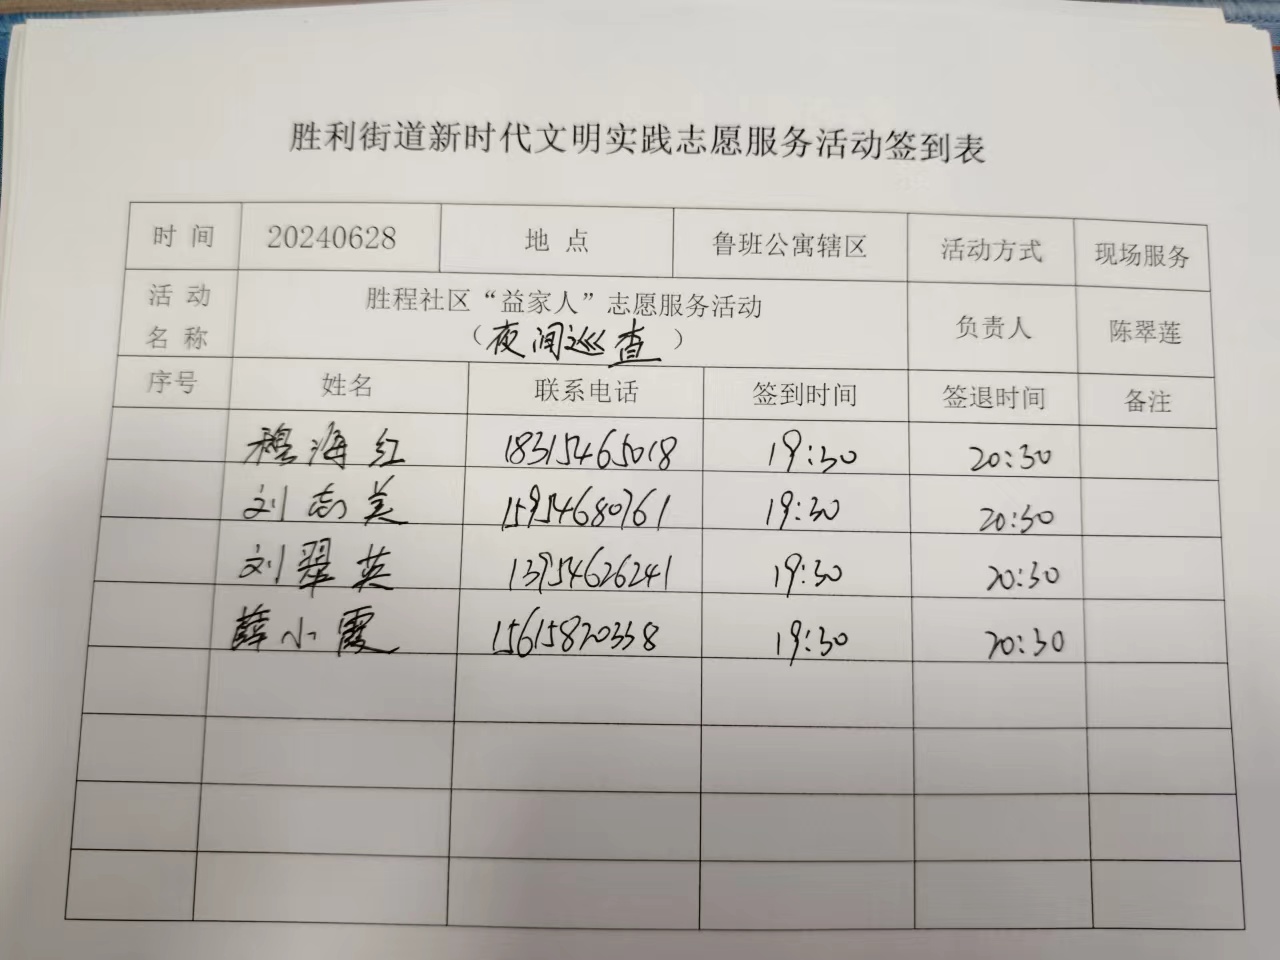 胜利街道新时代文明实践志愿服务活动签到表
时间 20240628 地点 鲁班公寓辖区 活动方式 现场服务
活动名称 胜程社区“益家人”志愿服务活动 负责人 陈翠莲
（夜间巡查）
序号 姓名 联系电话 签到时间 签退时间 备注
穆海红 18315465018 19:30 20:30
刘志美 15954680761 19:30 20:30
刘翠英 13954626241 19:30 20:30
薛小霞 15615820338 19:30 20:30